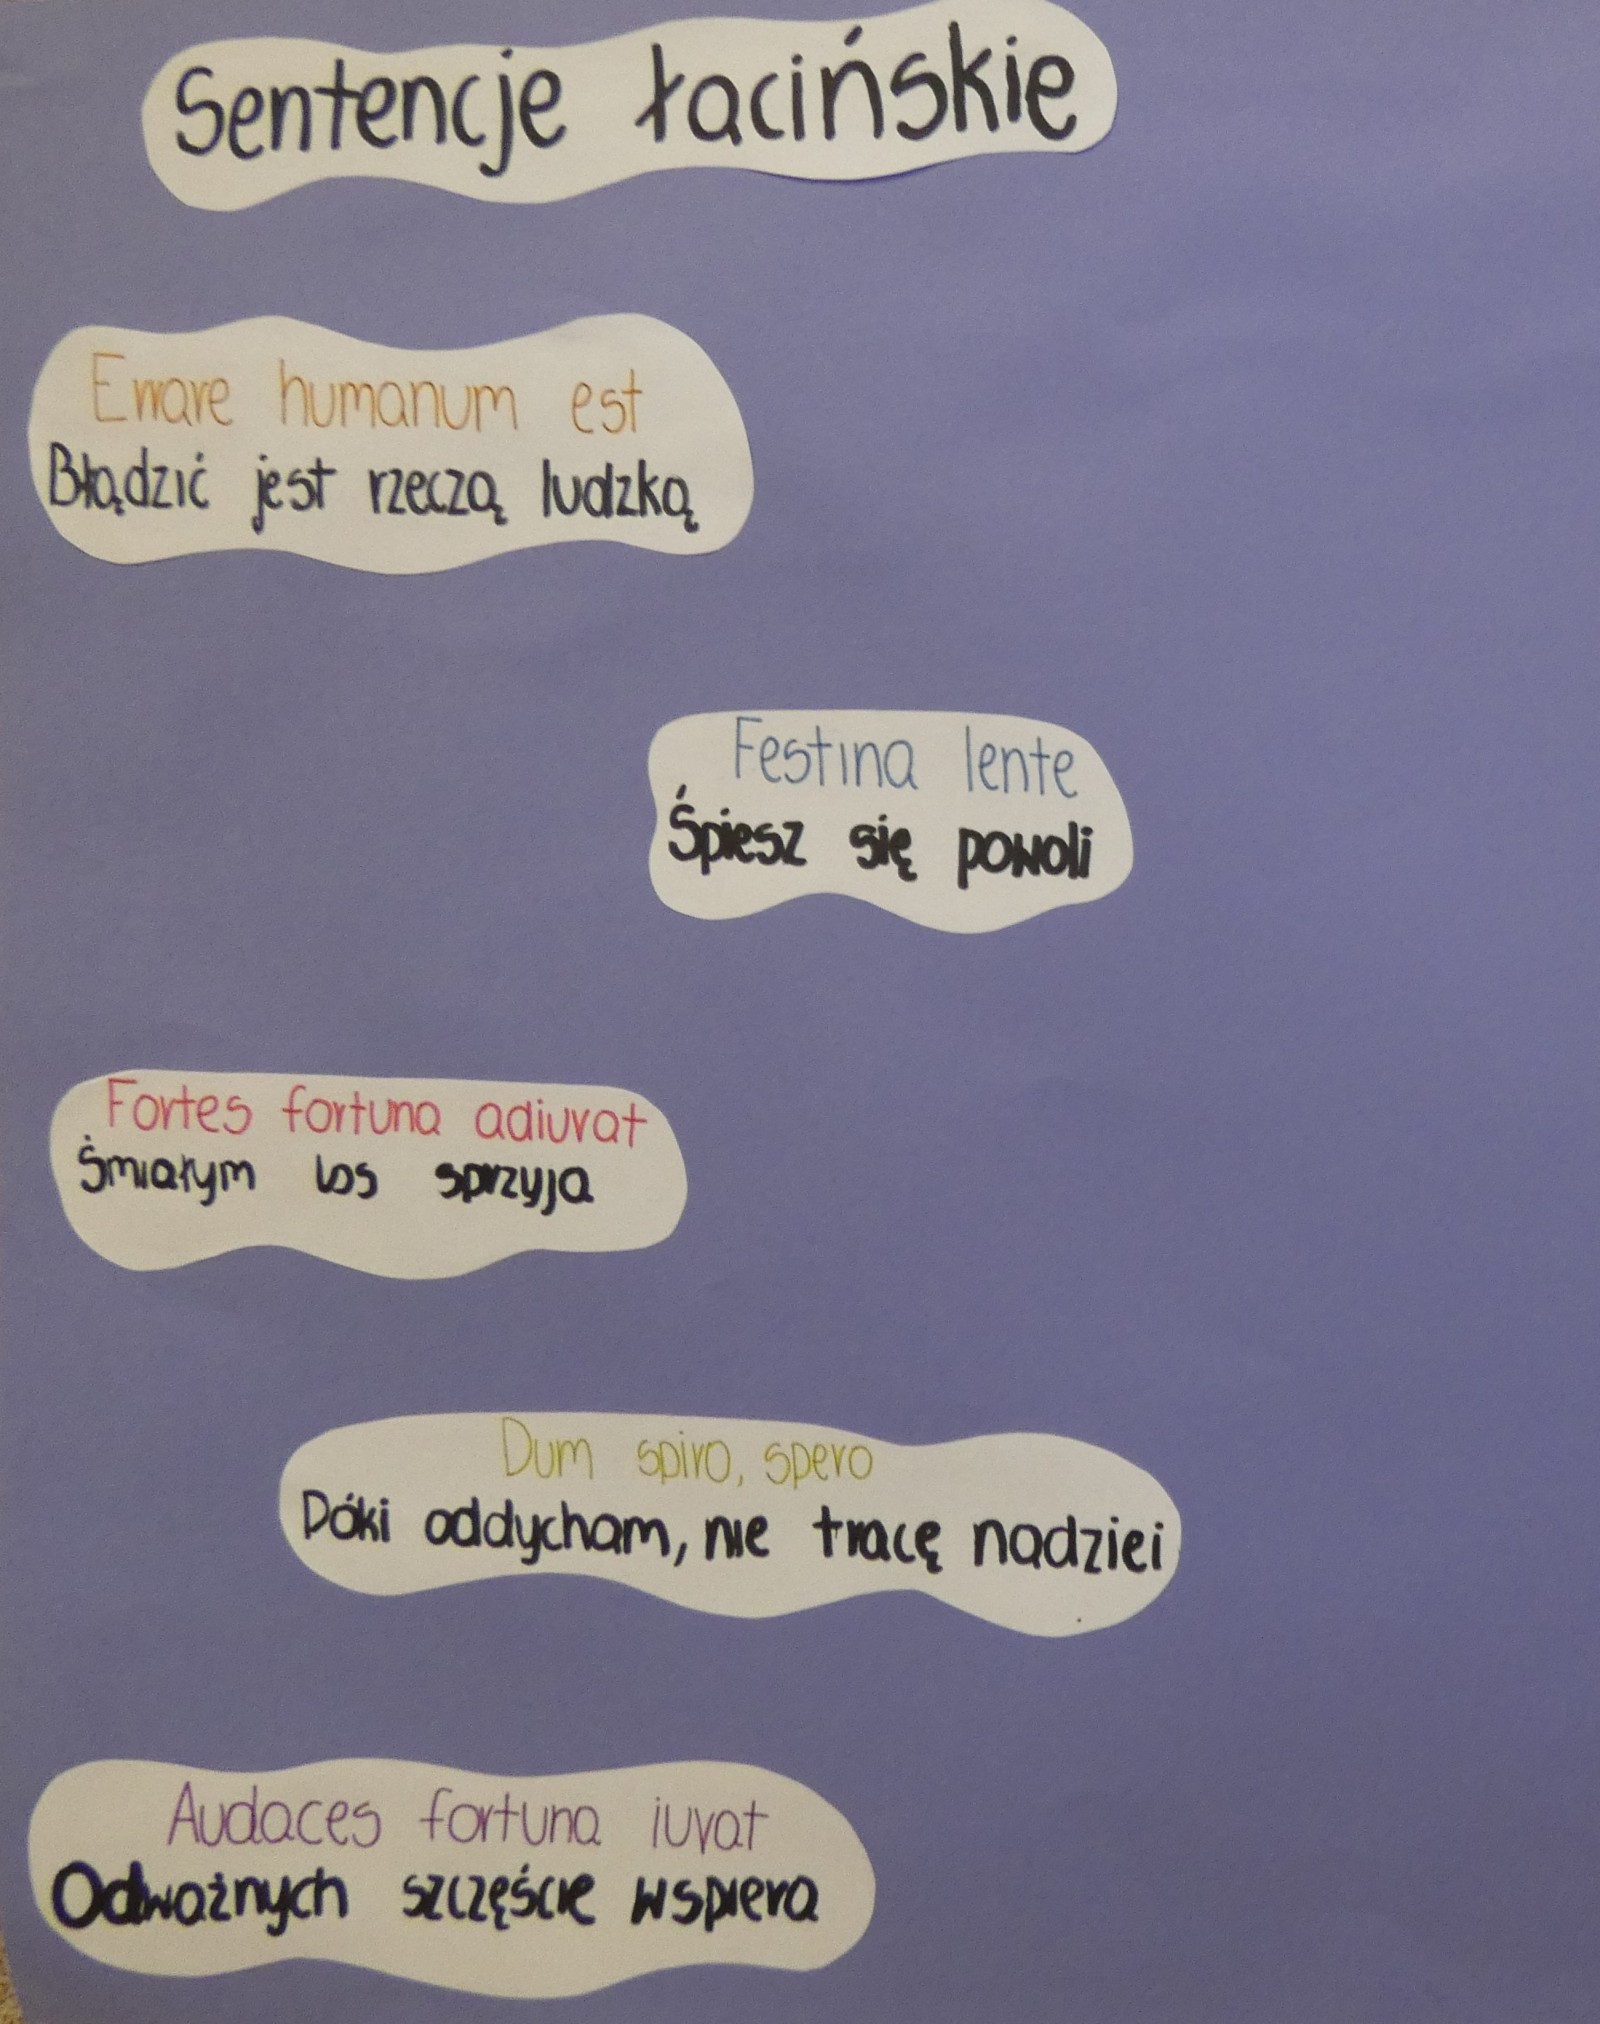 Sentencje łacińskie
Errare humanum est
Błądzić jest rzeczą ludzką
Festina lente
Śpiesz się powoli
Fortes fortuna adiuvat
Śmiałym los sprzyja
Dum spiro, spero
Póki oddycham, nie tracę nadziei
Audaces fortuna iuvat
Odważnych szczęście wspiera